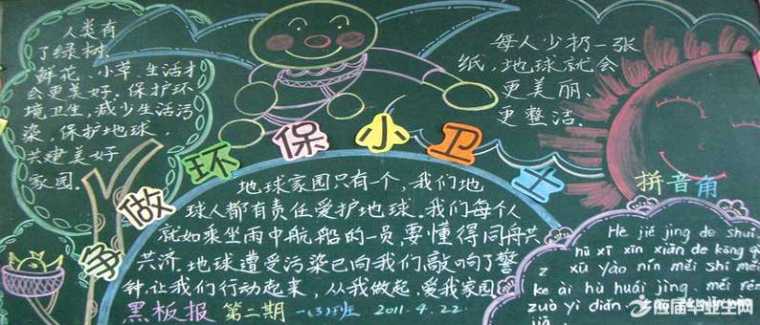 人类有
了绿树
鲜花、小草、生活才
会更美好。保护环
境卫生,减少生活污
染,保护地球,
共建美好
家园。
每人少扔一张
纸,地球就会
更美丽、
更整洁。
争做环保小卫士
地球家园只有一个,我们地
球人都有责任爱护地球。我们每个人
就如乘坐雨中航船的一员,要懂得同舟共
共济。地球遭受污染已向我们敲响了警
钟,让我们行动起来,从我做起,爱我家园。
黑板报 第二期 一(3)班 2011.4.22
拼音角
Hé jié jìng de shuǐ
hū xī xīn xiān de kōng qì
xū yào nín měi shí měi
kè ài hù huái jìng. měi rén
zuò yì diǎn.
jiā
应届毕业生网